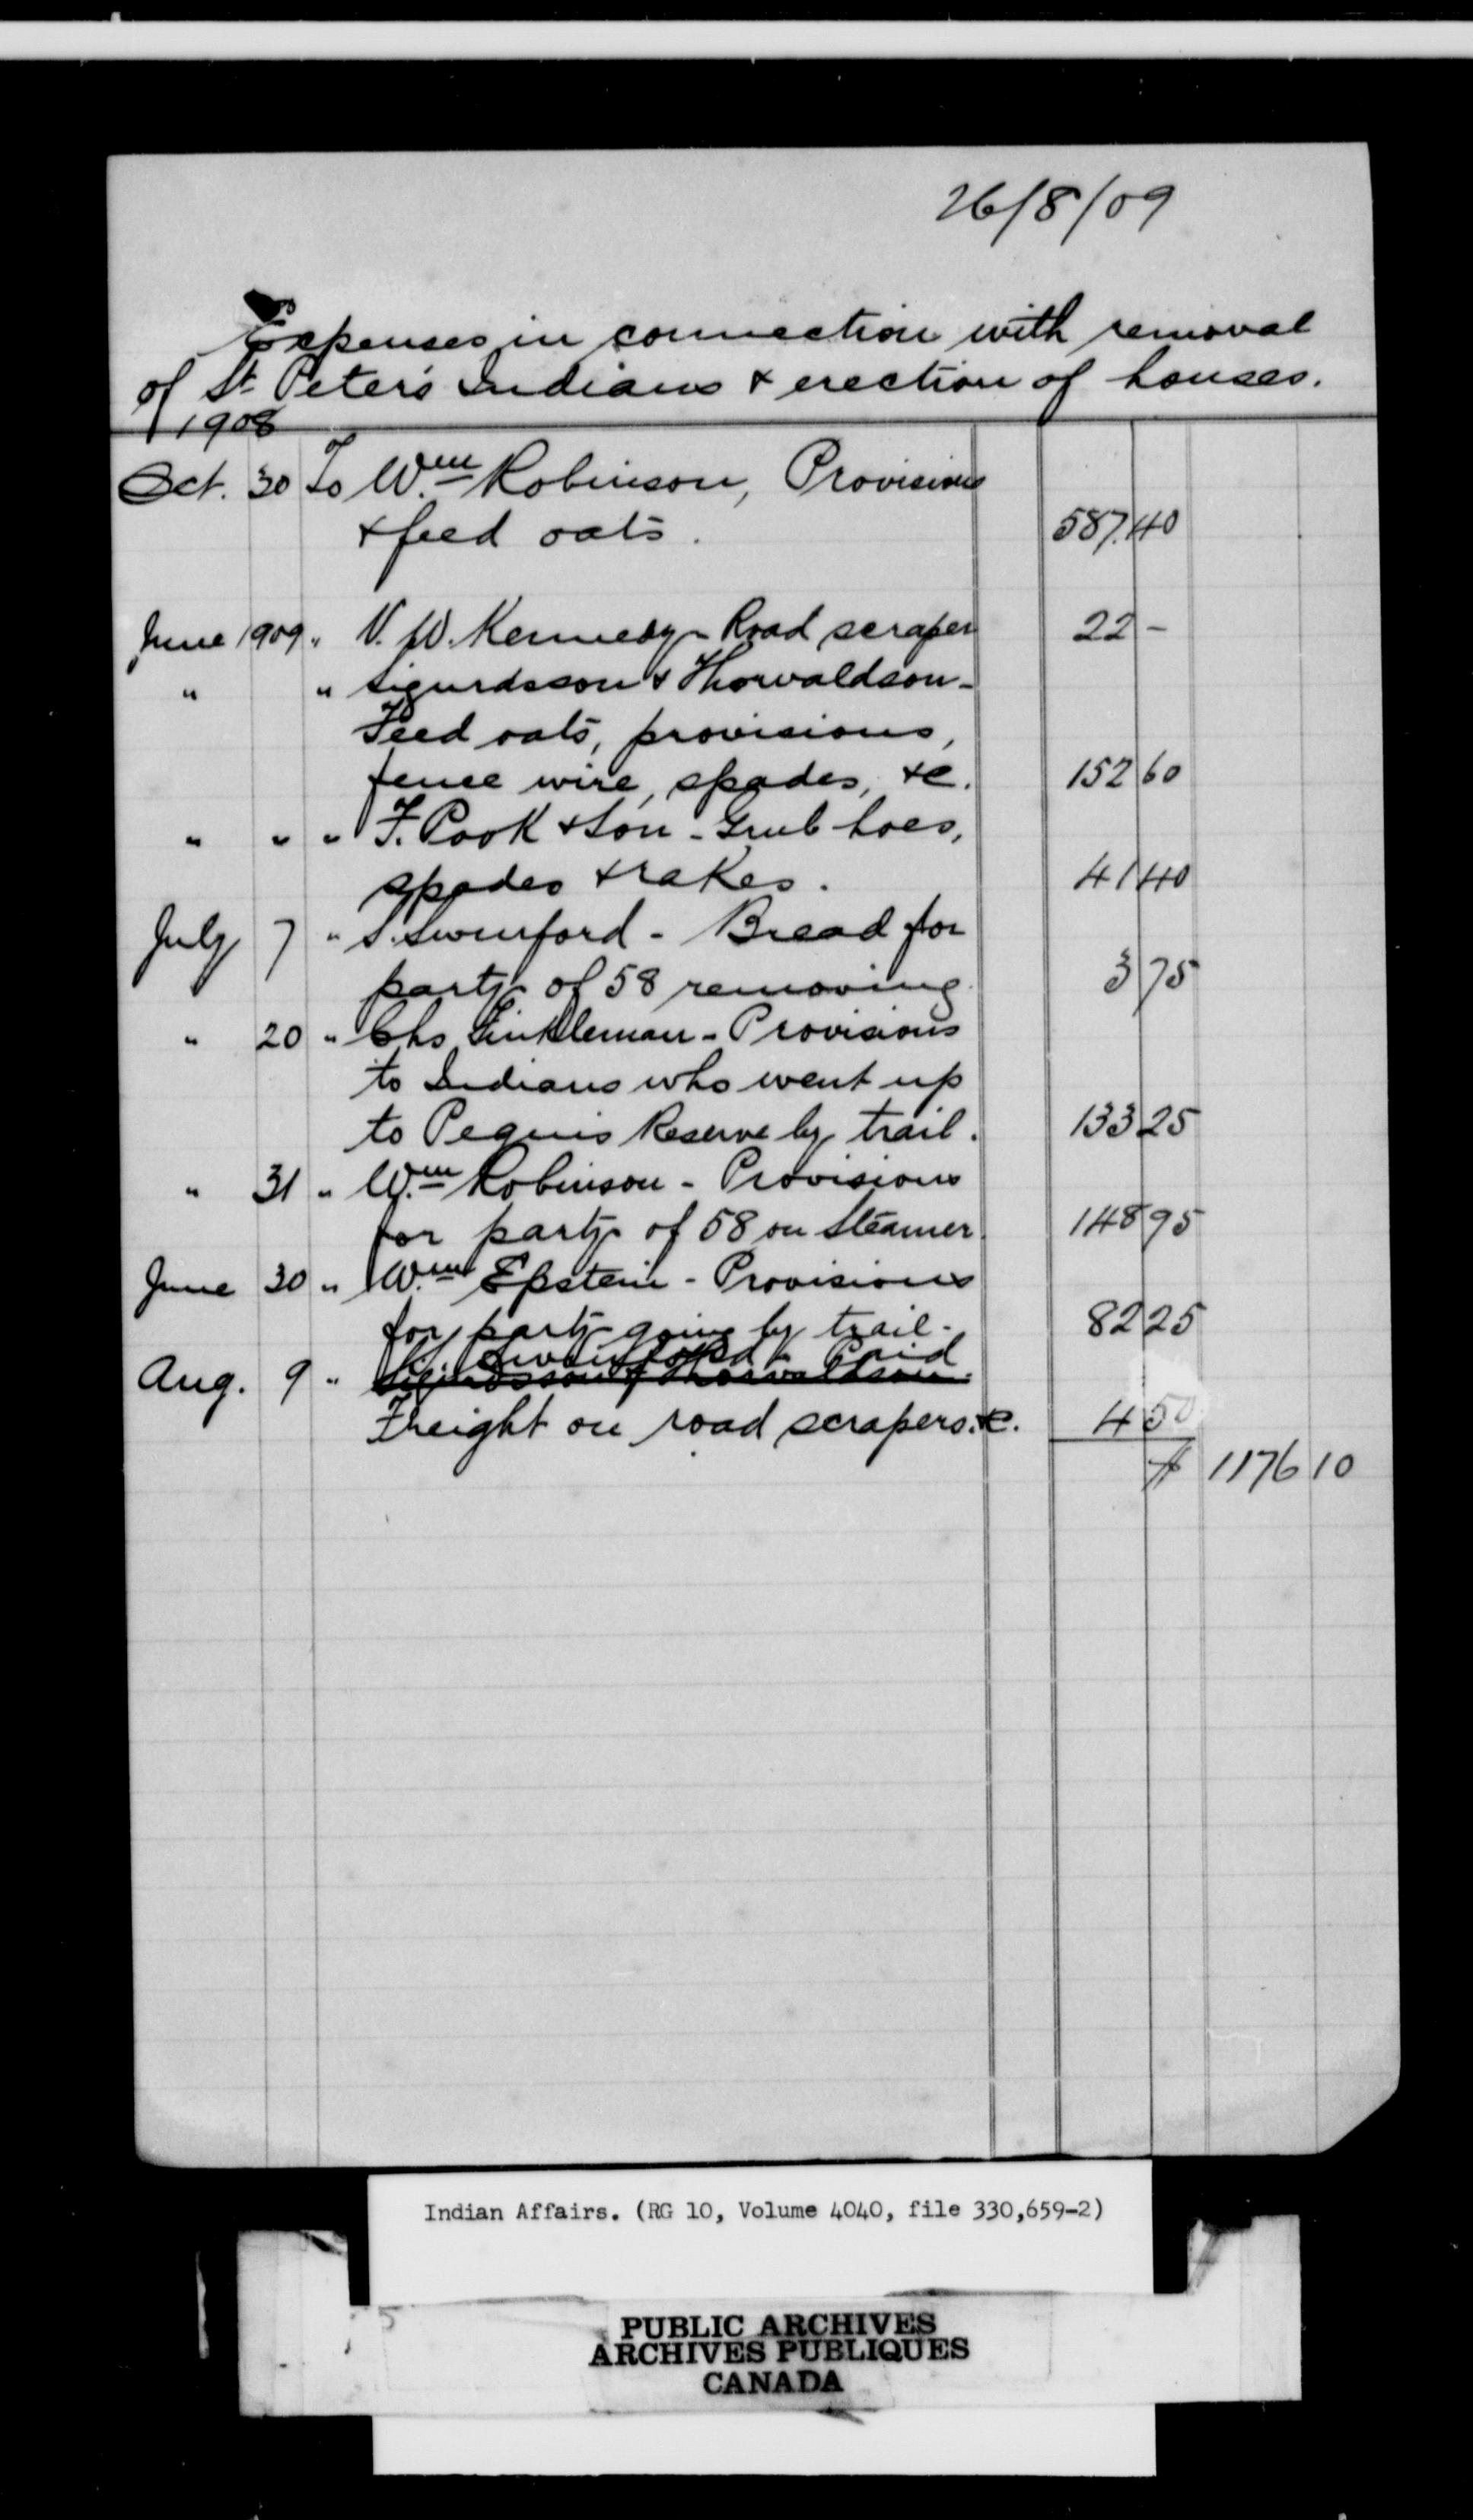 26/8/09
Expenses in connection with removal
of St. Peter's Indians & erection of houses.
1908
Oct. 30 To Wm Robinson, Provisions
& feed oats. 587.40
June 1909 " V. W. Kennedy - Road scraper 22 -
" " Sigurdsson & Thorvaldson -
Feed oats, provisions,
fence wire, spades, &c. 152 60
" " " F. Pook & Son - Grub hoes,
spades & rakes. 41 40
July 7 " S. Swinford - Bread for
party of 58 removing 3 75
" 20 " Chs. Finkleman - Provisions
to Indians who went up
to Peguis Reserve by trail. 133 25
" 31 " Wm Robinson - Provisions
for party of 58 on Steamer. 148 95
June 30 " Wm Epstein - Provisions
for party going by trail - 82 25
S. Swinford - Paid
Aug. 9 " Sigurdsson & Thorvaldson.
Freight on road scrapers. &c. 4 50
$ 1176 10
Indian Affairs. (RG 10, Volume 4040, file 330,659-2)
PUBLIC ARCHIVES
ARCHIVES PUBLIQUES
CANADA